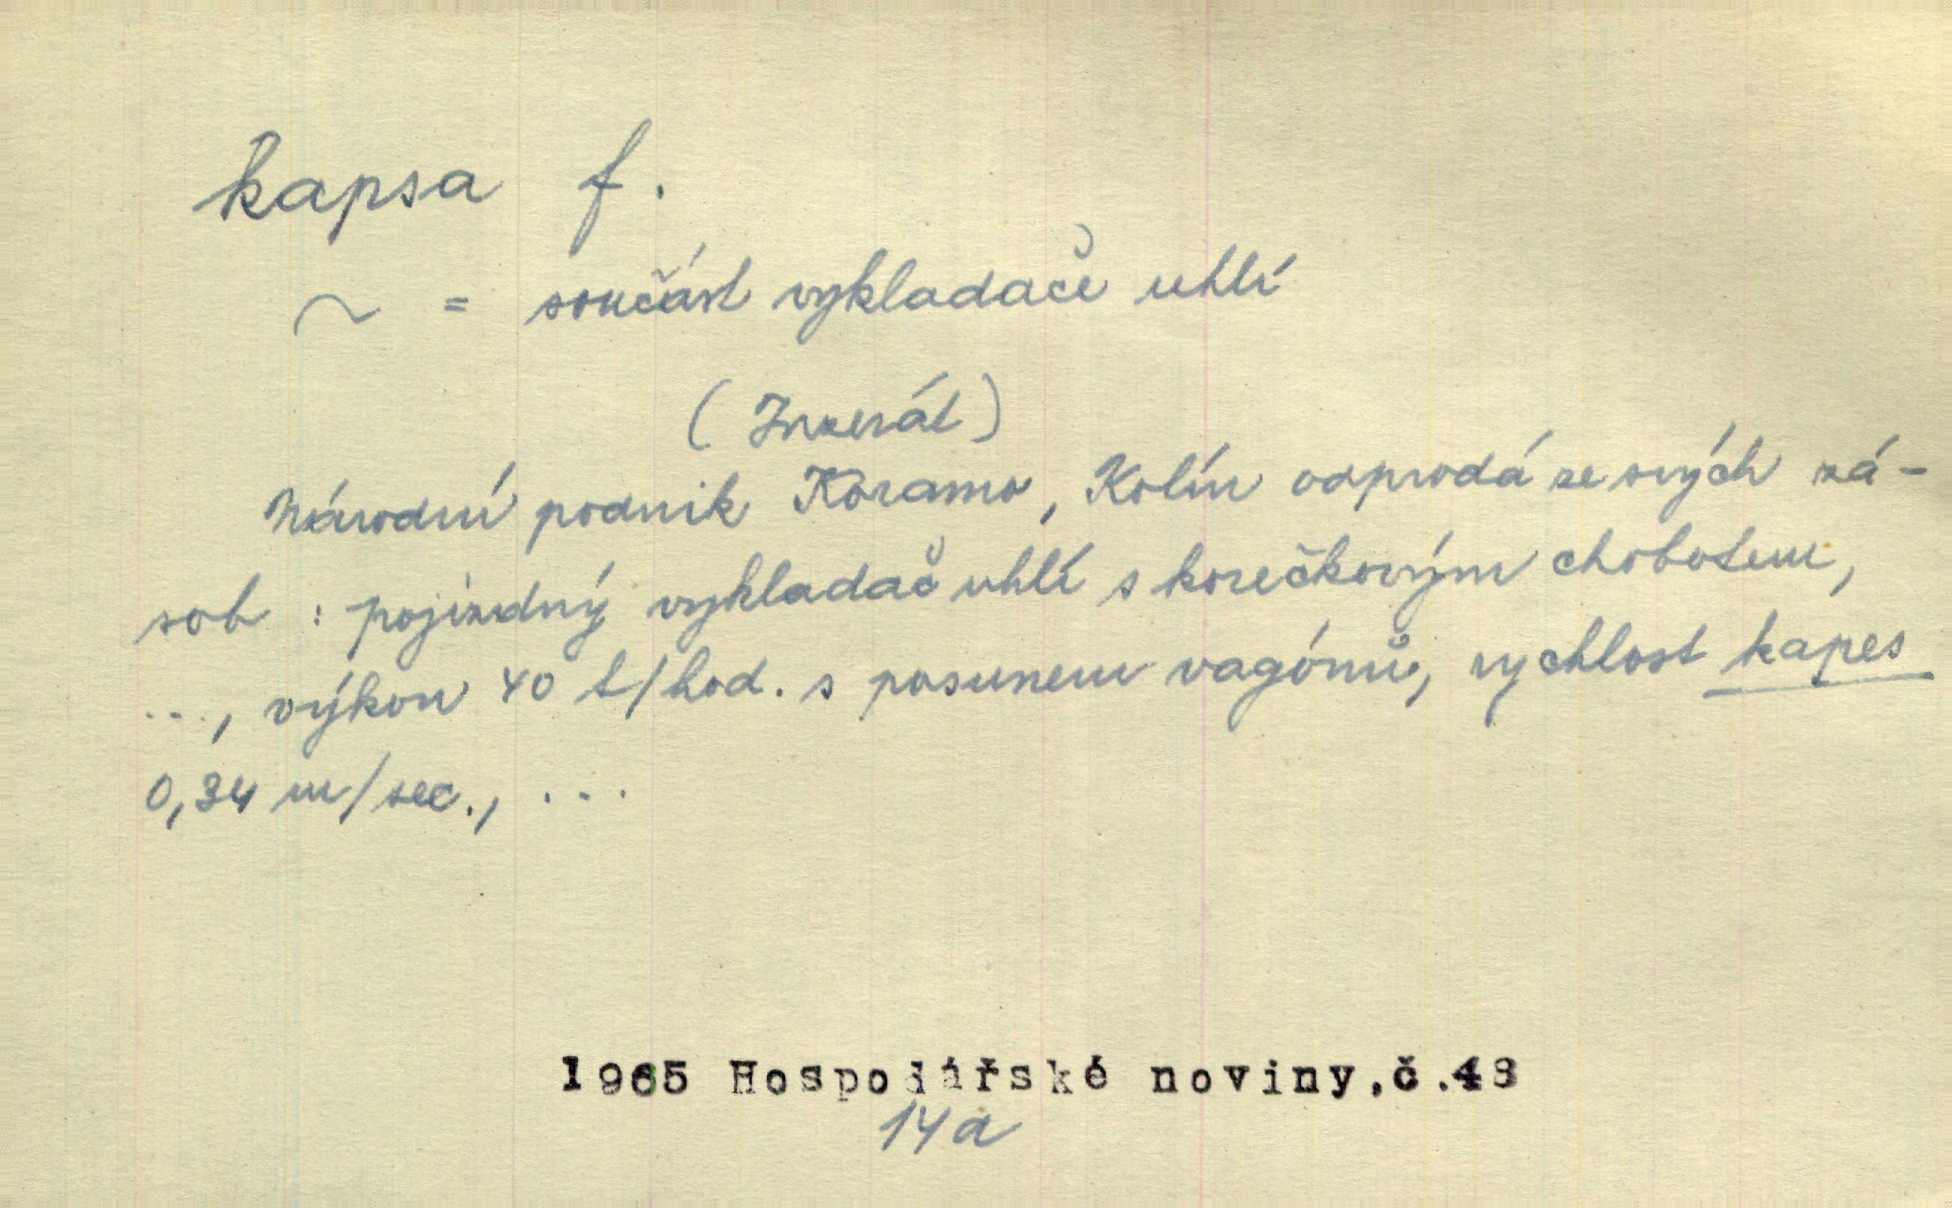 kapsa f.
~ = součást vykladače uhlí
(Inzerát)
Národní podnik Koramo, Kolín odprodá ze svých zá-
sob : pojízdný vykladač uhlí s korečkovým chobotem,
..., výkon 40 t/hod. s posunem vagónů, rychlost kapes
0,34 m/sec., ...
1965 Hospodářské noviny,č.48
14a